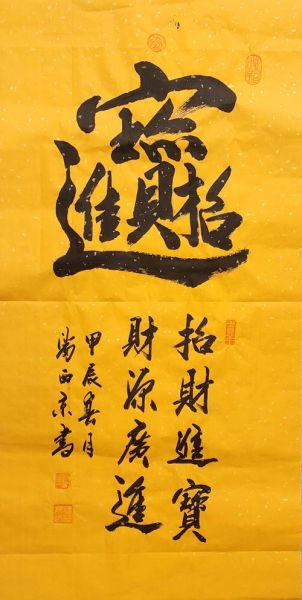 招財進寶
招財進寶
財源廣進
甲辰春月
西京書